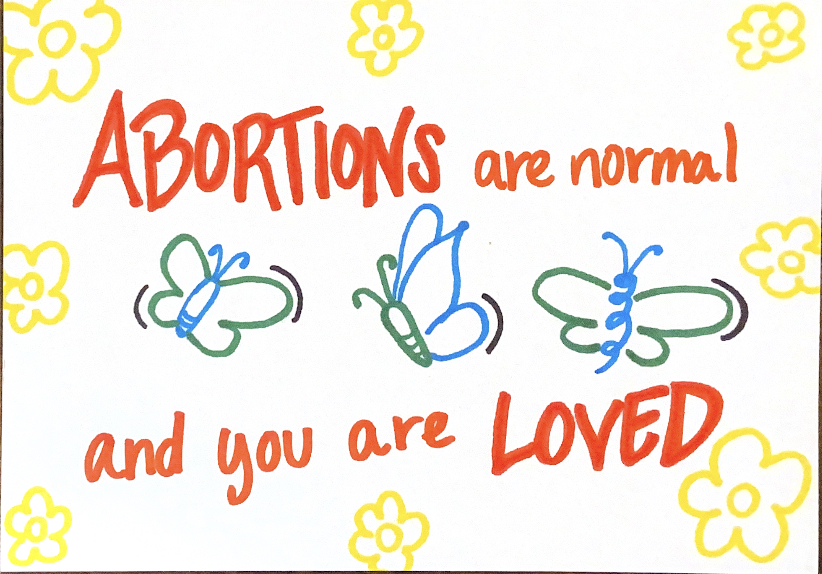 ABORTIONS are normal
and you are LOVED